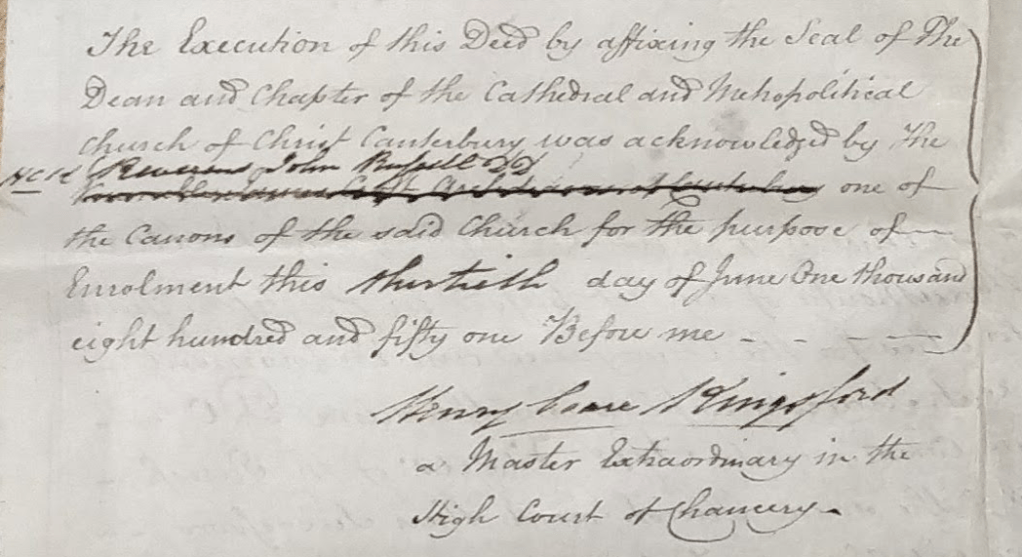 The Execution of this Deed by affixing the Seal of The
Dean and Chapter of the Cathedral and Metropolitical
church of Christ Canterbury was acknowledged by The
HCK Reverend John Russell DD
one of
the Canons of the said Church for the purpose of
Enrolment this thirtieth day of June One thousand
eight hundred and fifty one Before me - - - - -
Henry Kingsford
a Master Extraordinary in the
High Court of Chancery.